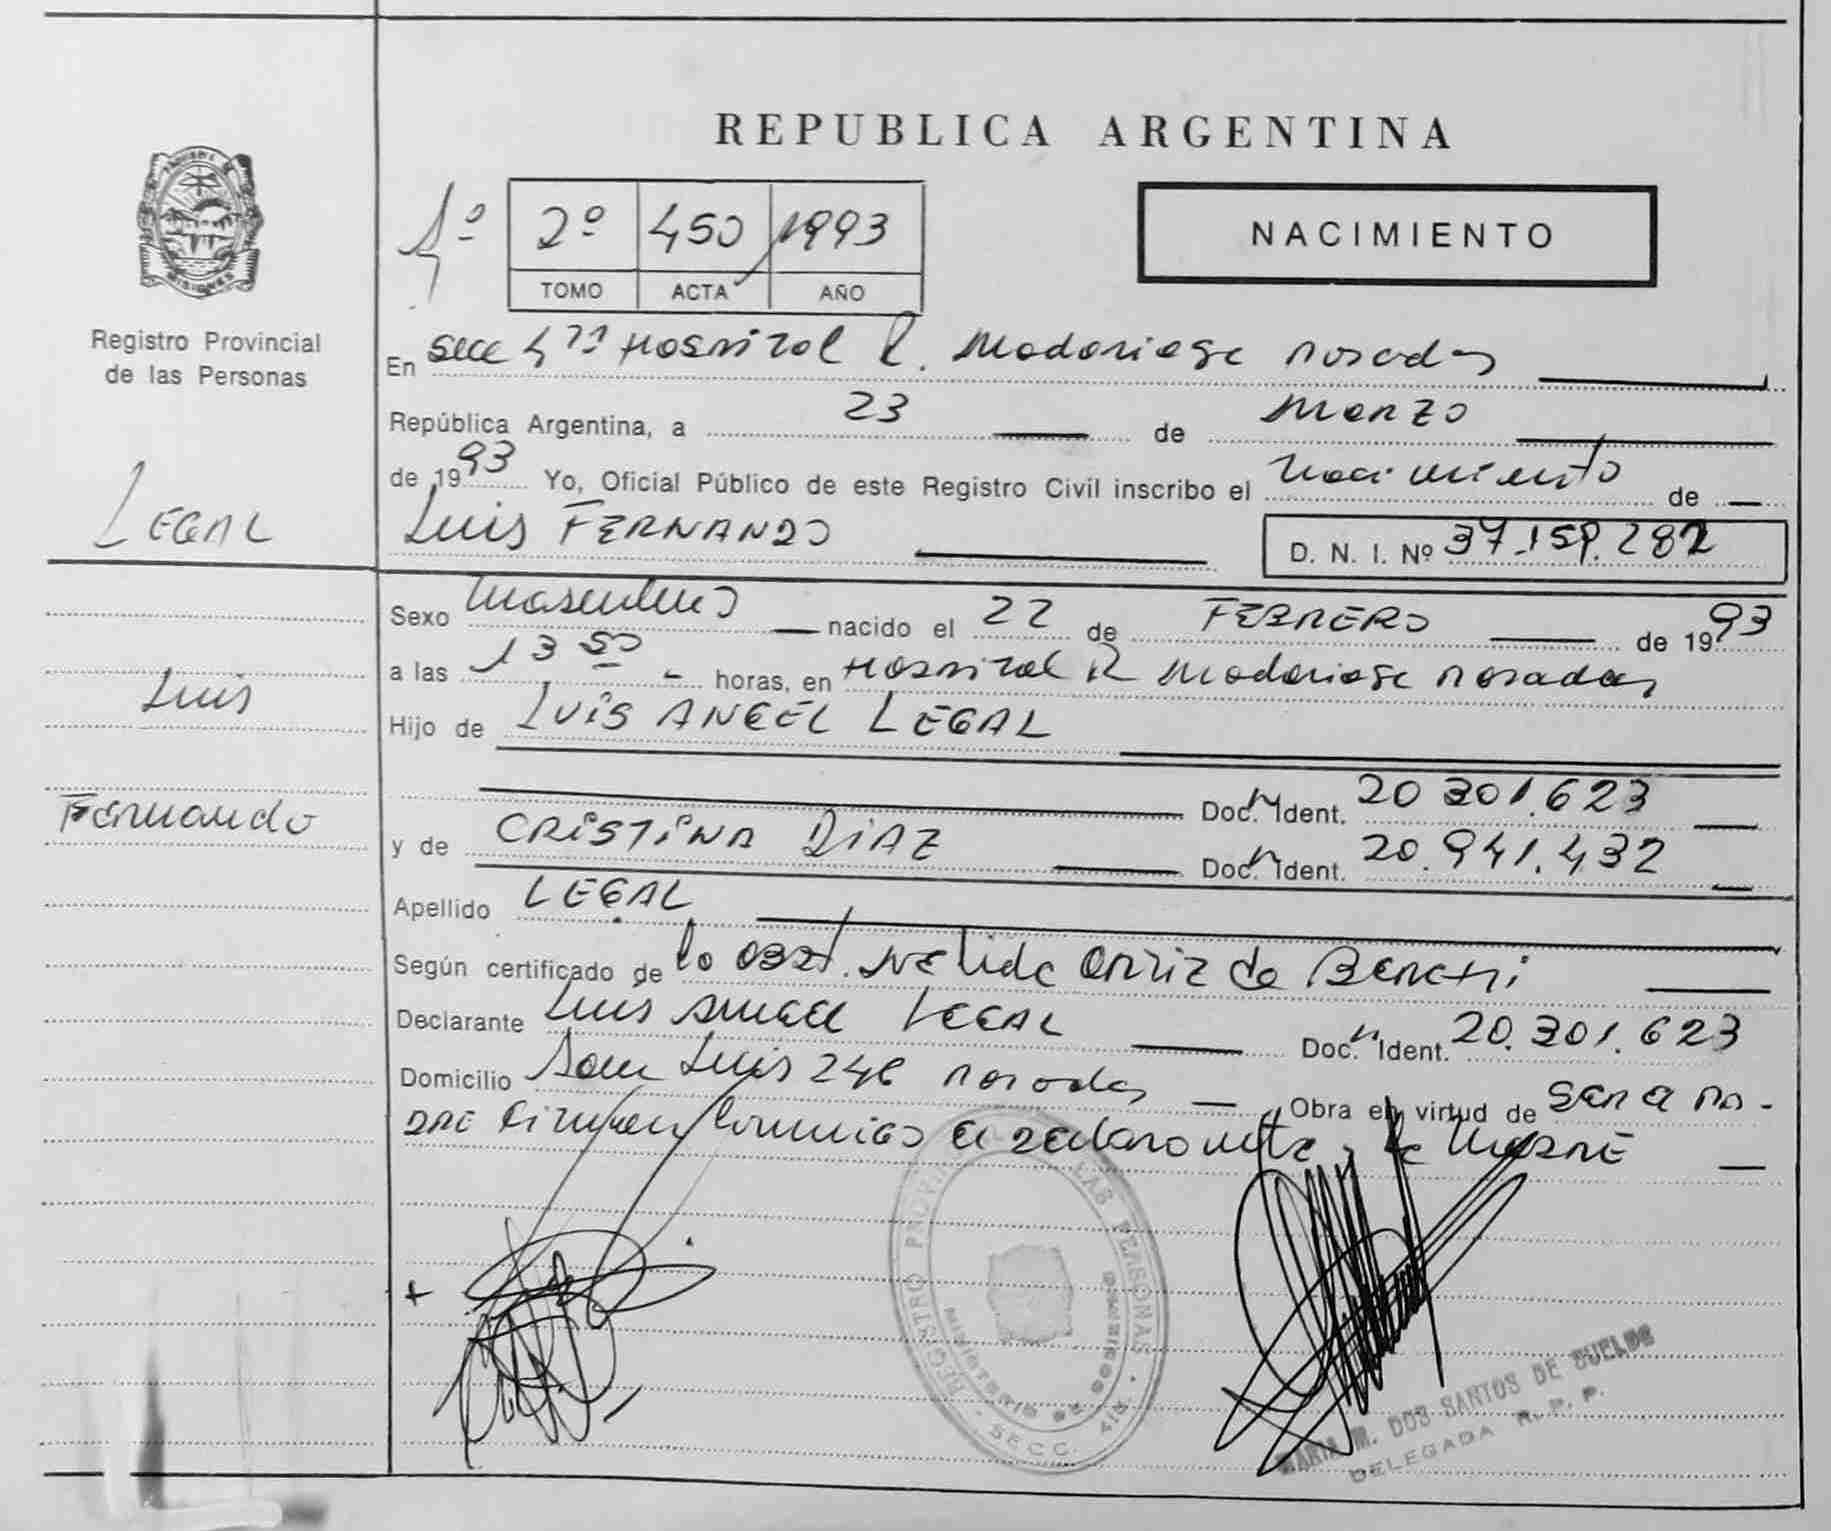 REPUBLICA ARGENTINA
MISIONES
Registro Provincial
de las Personas
4º 2º 450 1993
TOMO ACTA AÑO
NACIMIENTO
En Secc 4ta Hospital R. Madariaga Posadas
República Argentina, a 23 de Marzo
de 1993 Yo, Oficial Público de este Registro Civil inscribo el Nacimiento de
LEGAL
Luis FERNANDO D. N. I. Nº 37.159.282
Sexo Masculino nacido el 22 de FEBRERO de 1993
a las 13 50 horas, en Hospital R Madariaga Posadas
Luis
Hijo de LUIS ANGEL LEGAL
Doc. Ident. 20 301.623
Fernando
y de CRISTINA DIAZ Doc. Ident. 20.941.432
Apellido LEGAL
Según certificado de la obst. Nelida Ortiz de
Declarante Luis Angel LEGAL Doc. Ident. 20.301.623
Domicilio San Luis 246 Posadas Obra en virtud de Ser el Pa-
DRE Firman Conmigo el declarante y la MADRE
REGISTRO PROVINCIAL DE LAS PERSONAS
MISIONES
SECC. 4ta.
MARIA M. DOS SANTOS DE SUELDO
DELEGADA R. P. P.